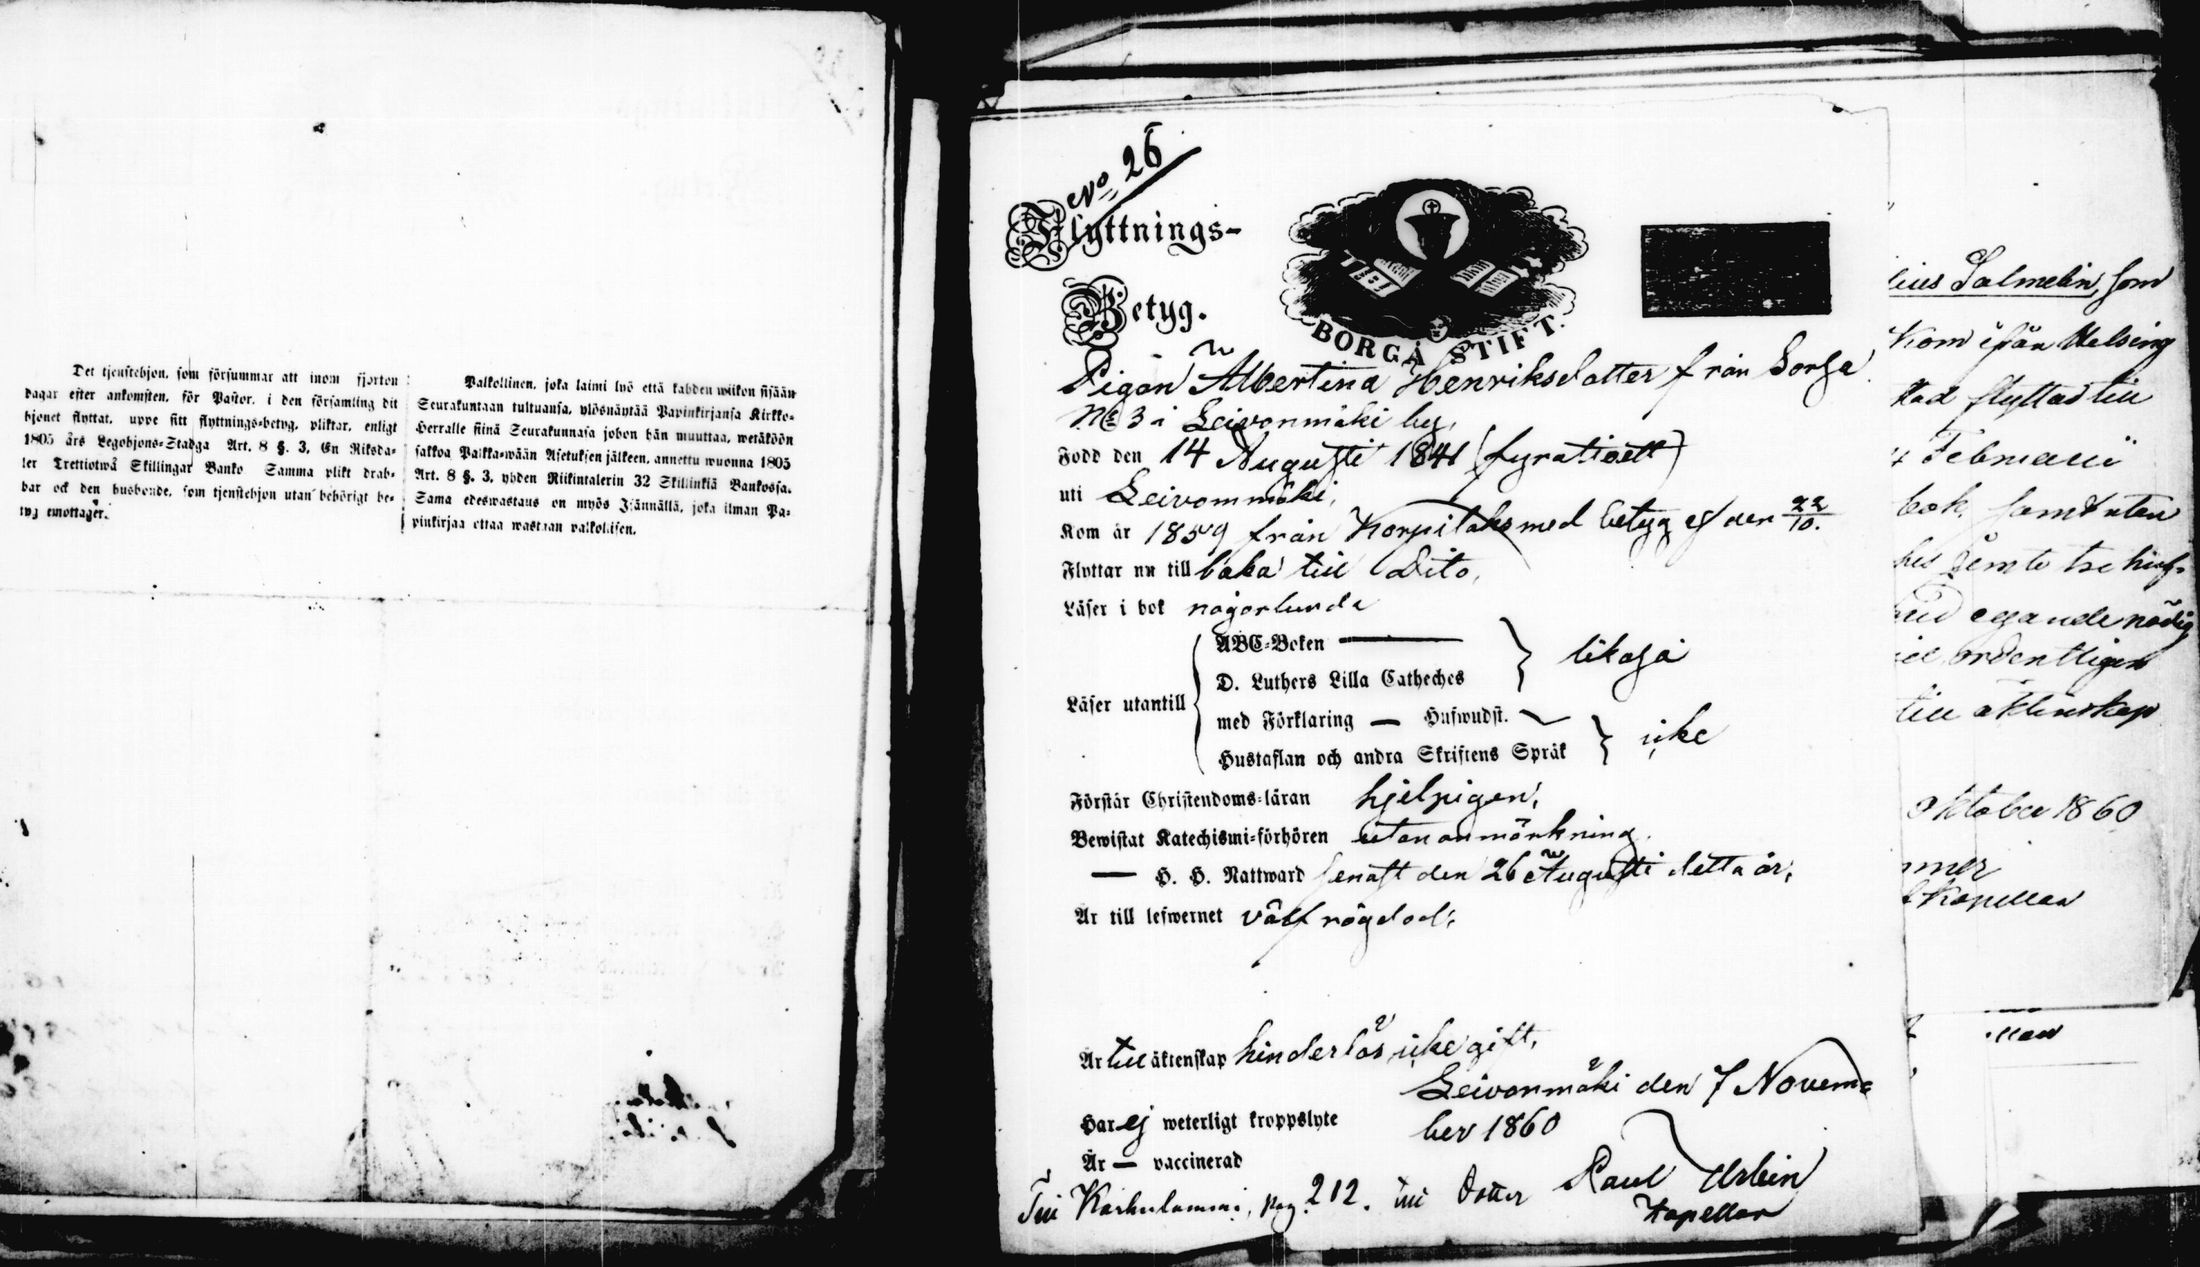 Det tjenstehjon, som försummar att inom fjorton
dagar efter ankomsten, för Pastor, i den församling dit
hjonet flyttat, uppe sitt flyttnings-betyg, pliktar, enligt
1805 års Legohjons-Stadga Art. 8 §. 3, En Riksda-
ler Trettiotwå Skillingar Banko Samma plikt drab-
bar ock den husbonde, som tjenstehjon utan behörigt be-
tyg emottager.
Palkollinen, joka laimi lyö että kahden wiikon sisään
Seurakuntaan tultuansa, ylösnäytää Papinkirjansa Kirkko-
Herralle siinä Seurakunnasa johon hän muuttaa, wetäköön
sakkoa Palkka-wään Asetuksen jälkeen, annettu wuonna 1805
Art. 8 §. 3, yhden Riikintalerin 32 Skillinkiä Bankossa.
Sama edeswastaus on myös Isännällä, joka ilman Pa-
pinkirjaa ottaa wastaan palkollisen.
No 26
Flyttnings-
Betyg.
BORGÅ STIFT.
Pigan Albertina Henriksdotter från Sorsa
No 3 i Leivonmäki by,
Född den 14 Augusti 1841 (fyratioett)
uti Leivonmäki,
Kom år 1859 från Korpilaks med betyg af den 22/10.
Flyttar nu till baka till Dito,
Läser i bok någorlunda
ABC-Boken
D. Luthers Lilla Catheches
likaså
Läser utantill
med Förklaring — Hufwudst.
Hustaflan och andra Skriftens Språk
icke
Förstår Christendoms-läran hjelpigen,
Bewistat Katechismi-förhören utan anmärkning.
— H. H. Nattward senast den 26 Augusti detta år,
Är till lefwernet väl frägdad,
Är till äktenskap hinderlös, icke gift,
Leivonmäki den 7 Novem-
Har ej weterligt kroppslyte
ber 1860
Är — vaccinerad
Paul
Kapellan
Till pag. 212. till dotter
Salmelin, som
Kom ifrån Helsing
stad flyttad till
Februarii
bok, samt utan
jemte tre
egande nödig
ordentligen
till äktenskap
Oktober 1860
Kapellan